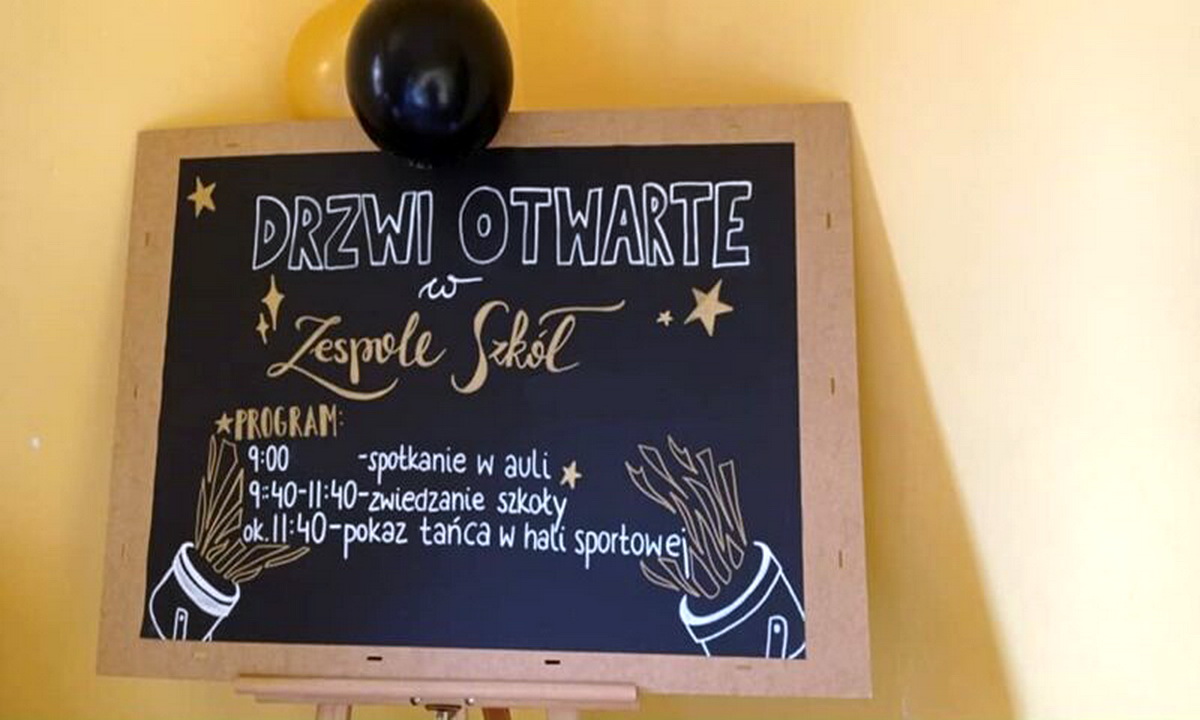 DRZWI OTWARTE
w
Zespole Szkół
PROGRAM:
9:00 -spotkanie w auli
9:40-11:40-zwiedzanie szkoły
ok.11:40-pokaz tańca w hali sportowej